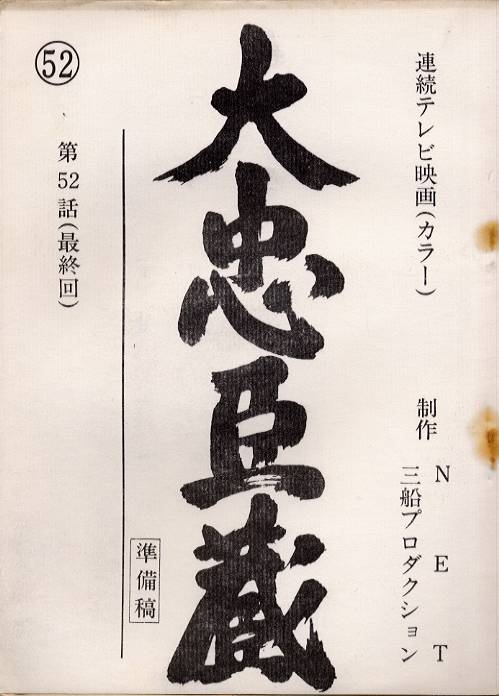 連続テレビ映画(カラー)
制作 NET
三船プロダクション
大忠臣蔵
準備稿
第52話(最終回)
52